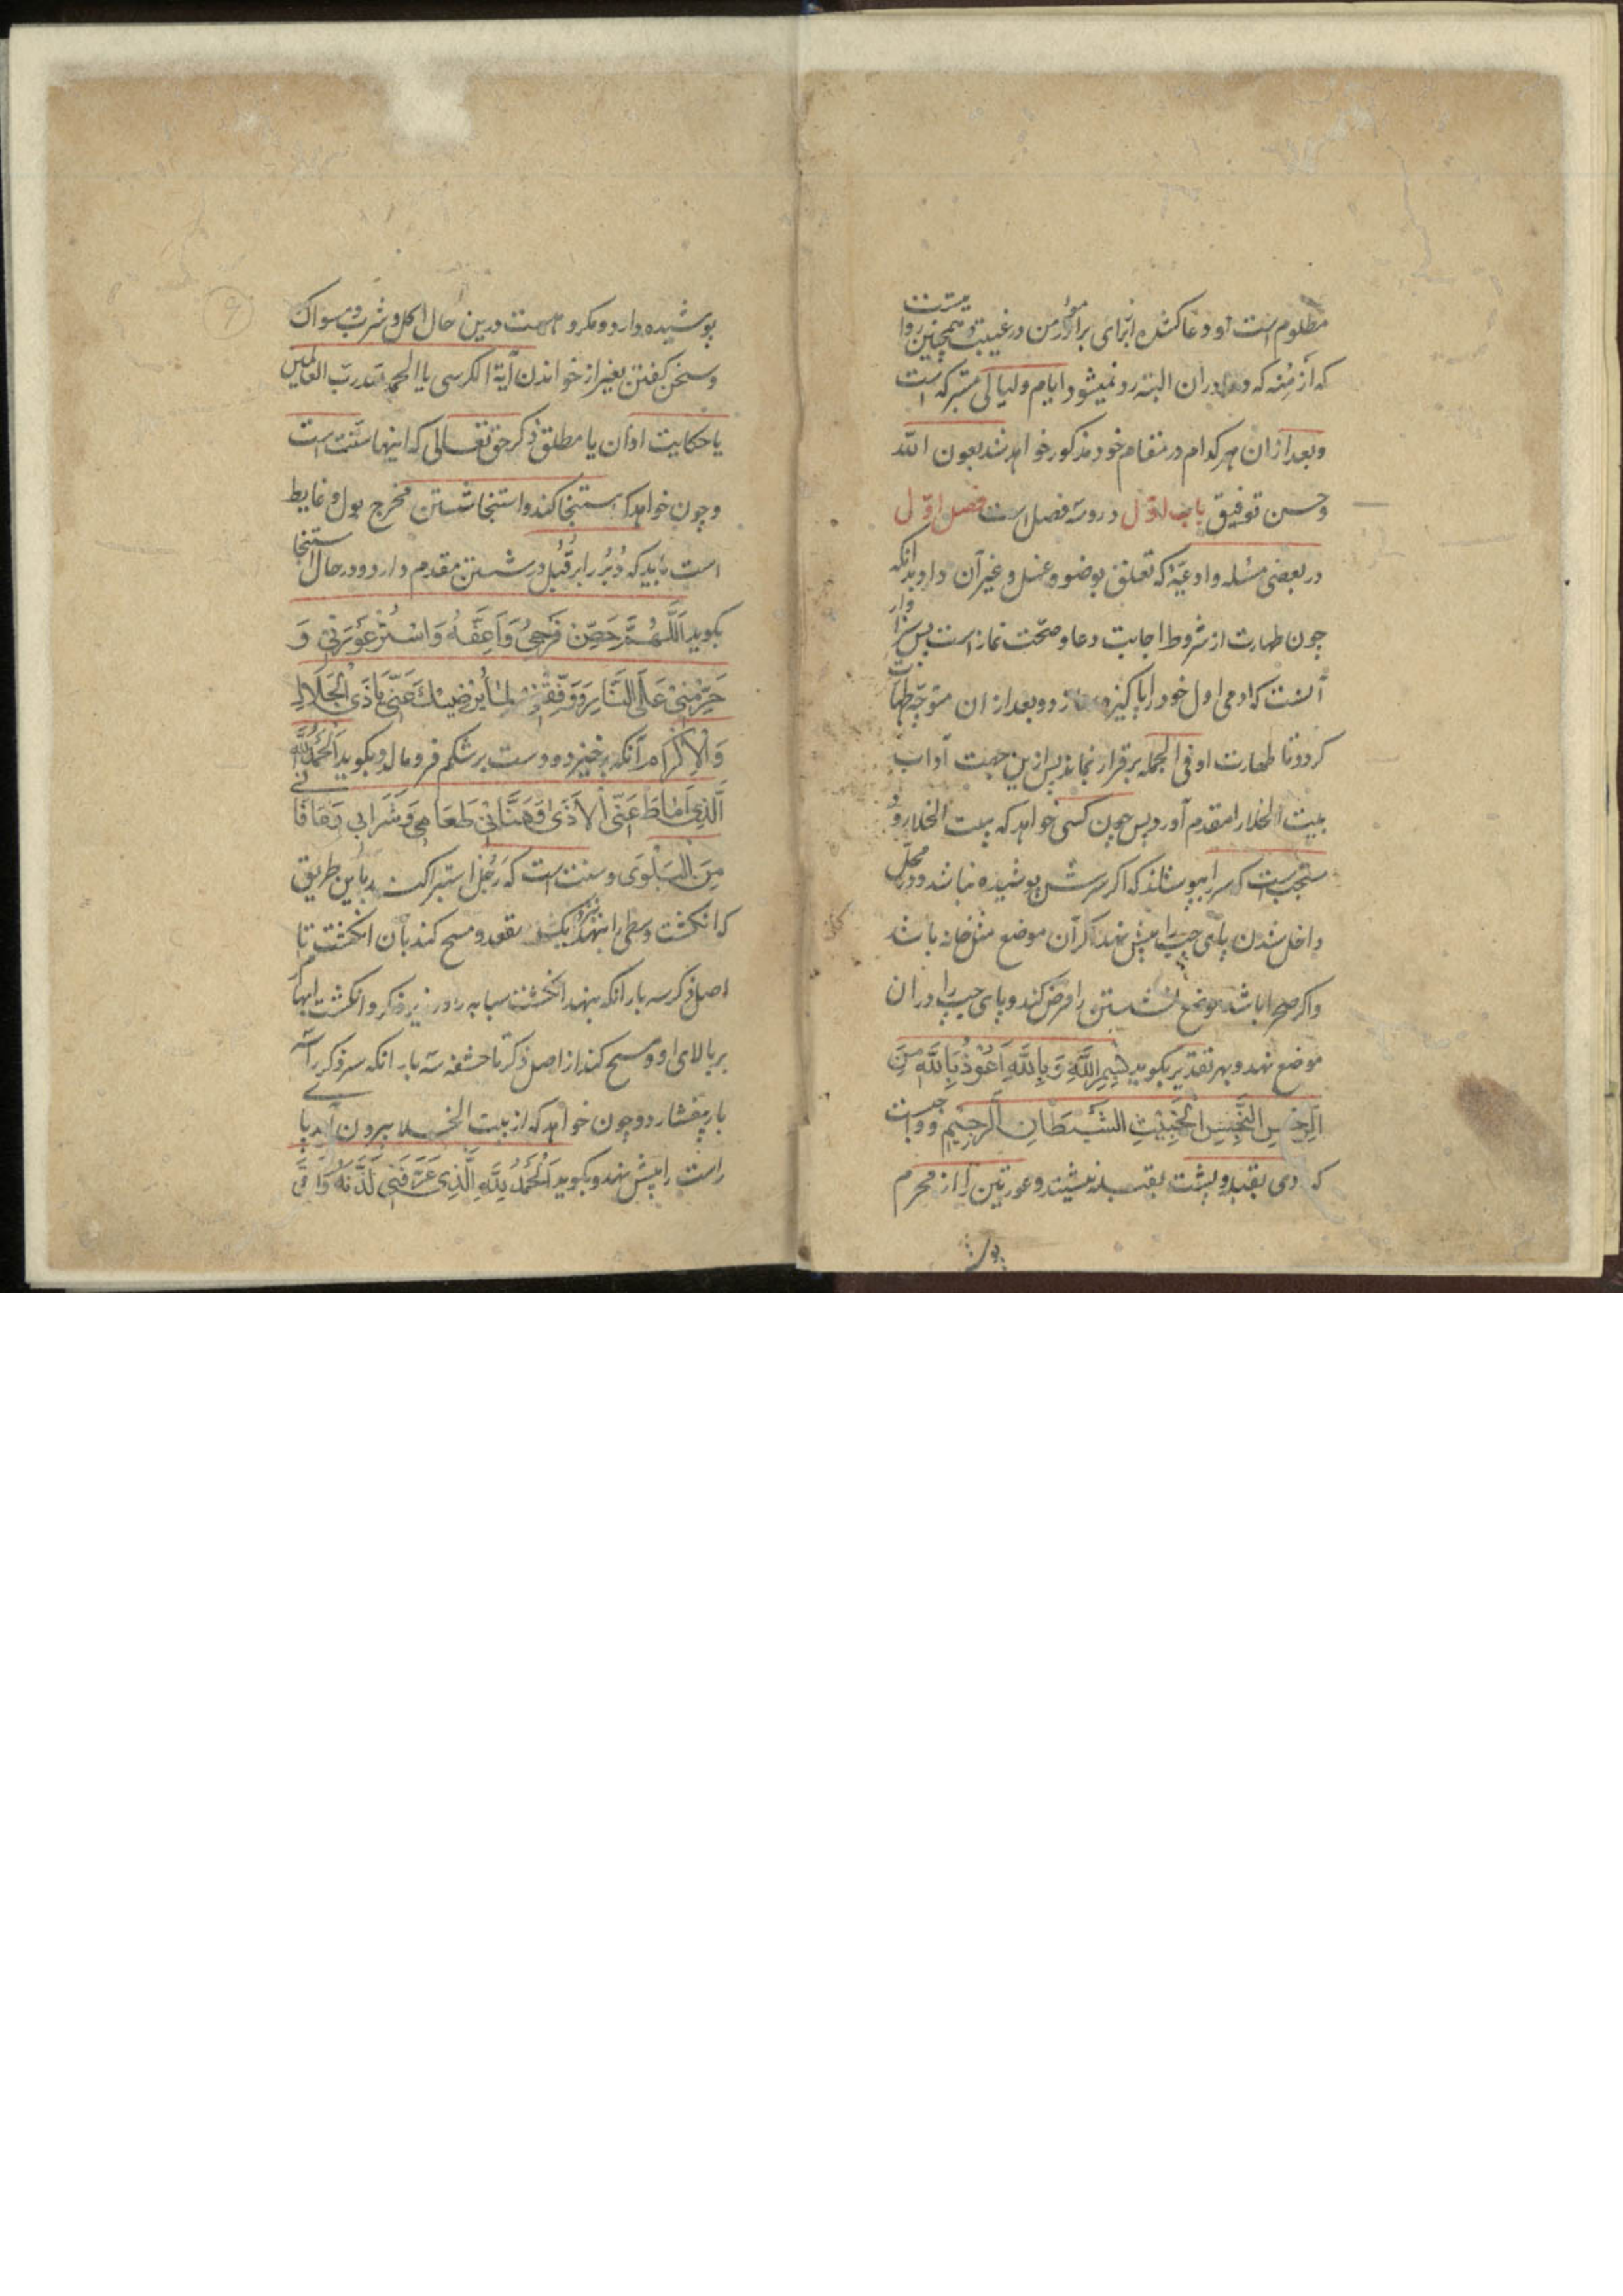 مظلوم است او و دعا کننده از برای برادر مؤمن در غیبت و همچنین روا
که ازمنه که دعا در آن البته رد نمیشود ایام و لیالی متبرکه است
و بعد از آن هر کدام در مقام خود مذکور خواهد شد بعون الله
و حسن توفیق باب اول در و سه فصل است فصل اول
در بعضی مسئله و ادعیهٔ که تعلق بوضو و غسل و غیر آن دارد بدانکه
چون طهارت از شروط اجابت دعا و صحت نماز است پس سزاوار
آنست که ادمی اول خود را پاکیزه سازد و بعد از ان متوجه طهارت
کردد تا طهارت او فی الجمله برقرار بماند پس ازین جهت آداب
بیت الخلا را مقدم آورد پس چون کسی خواهد که ببیت الخلا رود
مستحب است که سر را بپوشاند که اکر سرش پوشیده نباشد و در محل
داخل شدن پای چپ را پیش نهد اکر آن موضع مثل خانه باشد
و اکر صحرا باشد موضع نشستن را فرض کند و پای چپ را در ان
موضع نهد و بهر تقدیر بکوید بِسْمِ اللّٰهِ وَبِاللّٰهِ اَعُوْذُ بِاللّٰهِ مِنَ
الرِّجْسِ النَّجِسِ الْخَبِيْثِ الشَّيْطَانِ الرَّجِيْمِ و واجبست
که روی بقبله و پشت بقبله ننشیند و عورتین را از محرم
پوشیده دارد و مکروهست درین حال اکل و شرب و مسواک
و سخن کفتن بغیر از خواندن آیة الکرسی یا الحمد لله رب العالمین
یا حکایت اذان یا مطلق ذکر حق تعالی که اینها سنت است
و چون خواهد که استنجا کند و استنجا شستن مخرج بول و غایط
است باید که دُبُر را بر قُبُل در شستن مقدم دارد و در حال استنجا
بکوید اَللّٰهُمَّ حَصِّنْ فَرْجِيْ وَاَعِفَّهُ وَاسْتُرْ عَوْرَتِيْ وَ
حَرِّمْنِيْ عَلَى النَّارِ وَوَفِّقْنِيْ لِمَا يُرْضِيْكَ عَنِّيْ يَا ذَى الْجَلَالِ
وَالْاِكْرَامِ آنکه برخیزد و دست بر شکم فرو مالد و بکوید اَلْحَمْدُ لِلّٰهِ
الَّذِيْ اَمَاطَ عَنِّى الْاَذَى وَهَنَّانِيْ طَعَامِيْ وَشَرَابِيْ وَعَافَانِيْ
مِنَ الْبَلْوَى و سنت است که رجل استبرا کند باین طریق
که انکشت وسطی را بنهد نزدیک مقعد و مسح کند بآن انکشت تا
اصل ذکر سه بار آنکه بنهد انکشت سبابه را در زیر ذکر و انکشت ابهام را
بر بالای او و مسح کند از اصل ذکر تا حشفه سه بار آنکه سر ذکر را سه
بار بیفشارد و چون خواهد که از بیت الخلا بیرون آید پای
راست را پیش نهد و بکوید اَلْحَمْدُ لِلّٰهِ الَّذِيْ عَرَّفَنِيْ لَذَّتَهُ وَاَبْقَى